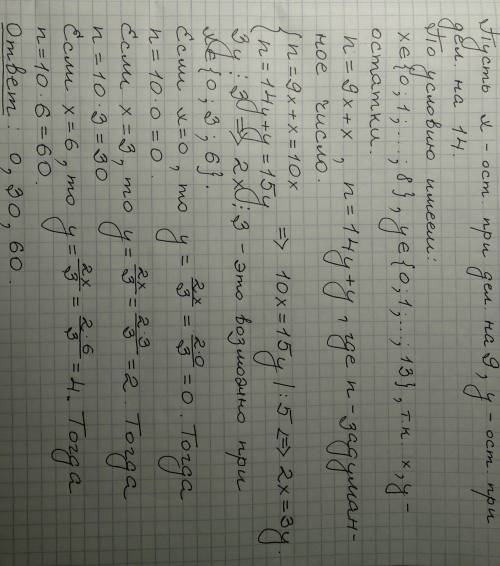 Пусть х - ост при дел на 9, у - ост при
дел на 14.
По условию имеем:
х∈{0;1;...;8}, у∈{0;1;...;13}, т.к х,у -
остатки.
n=9x+x, n=14y+y, где n - задуман-
ное число.
{n=9x+x=10x
{n=14y+y=15y => 10x=15y |:5 <=> 2x=3y.
3y⋮3 => 2x⋮3 - это возможно при
x∈{0;3;6}.
Если x=0, то y=2x/3=2·0/3=0. Тогда
n=10·0=0.
Если x=3, то y=2x/3=2·3/3=2. Тогда
n=10·3=30
Если x=6, то y=2x/3=2·6/3=4. Тогда
n=10·6=60.
Ответ: 0, 30, 60.